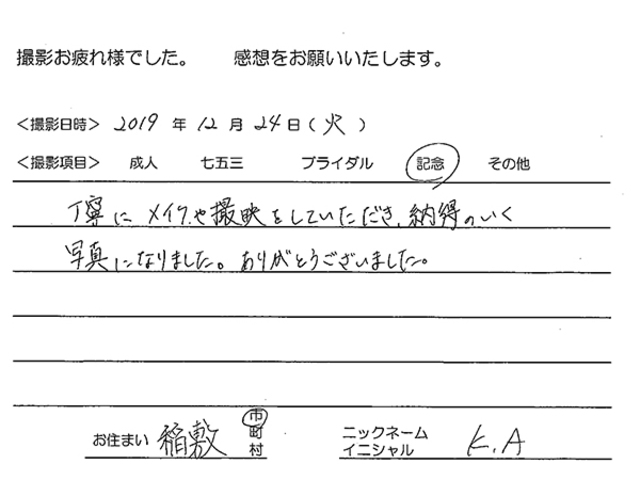 撮影お疲れ様でした。　感想をお願いいたします。
＜撮影日時＞ 2019 年 12 月 24 日（火）
＜撮影項目＞ 成人 七五三 ブライダル 記念 その他
丁寧に メイクや撮映をしていただき、納得のいく
写真になりました。ありがとうございました。
お住まい 稲敷 市町村 ニックネーム イニシャル K.A